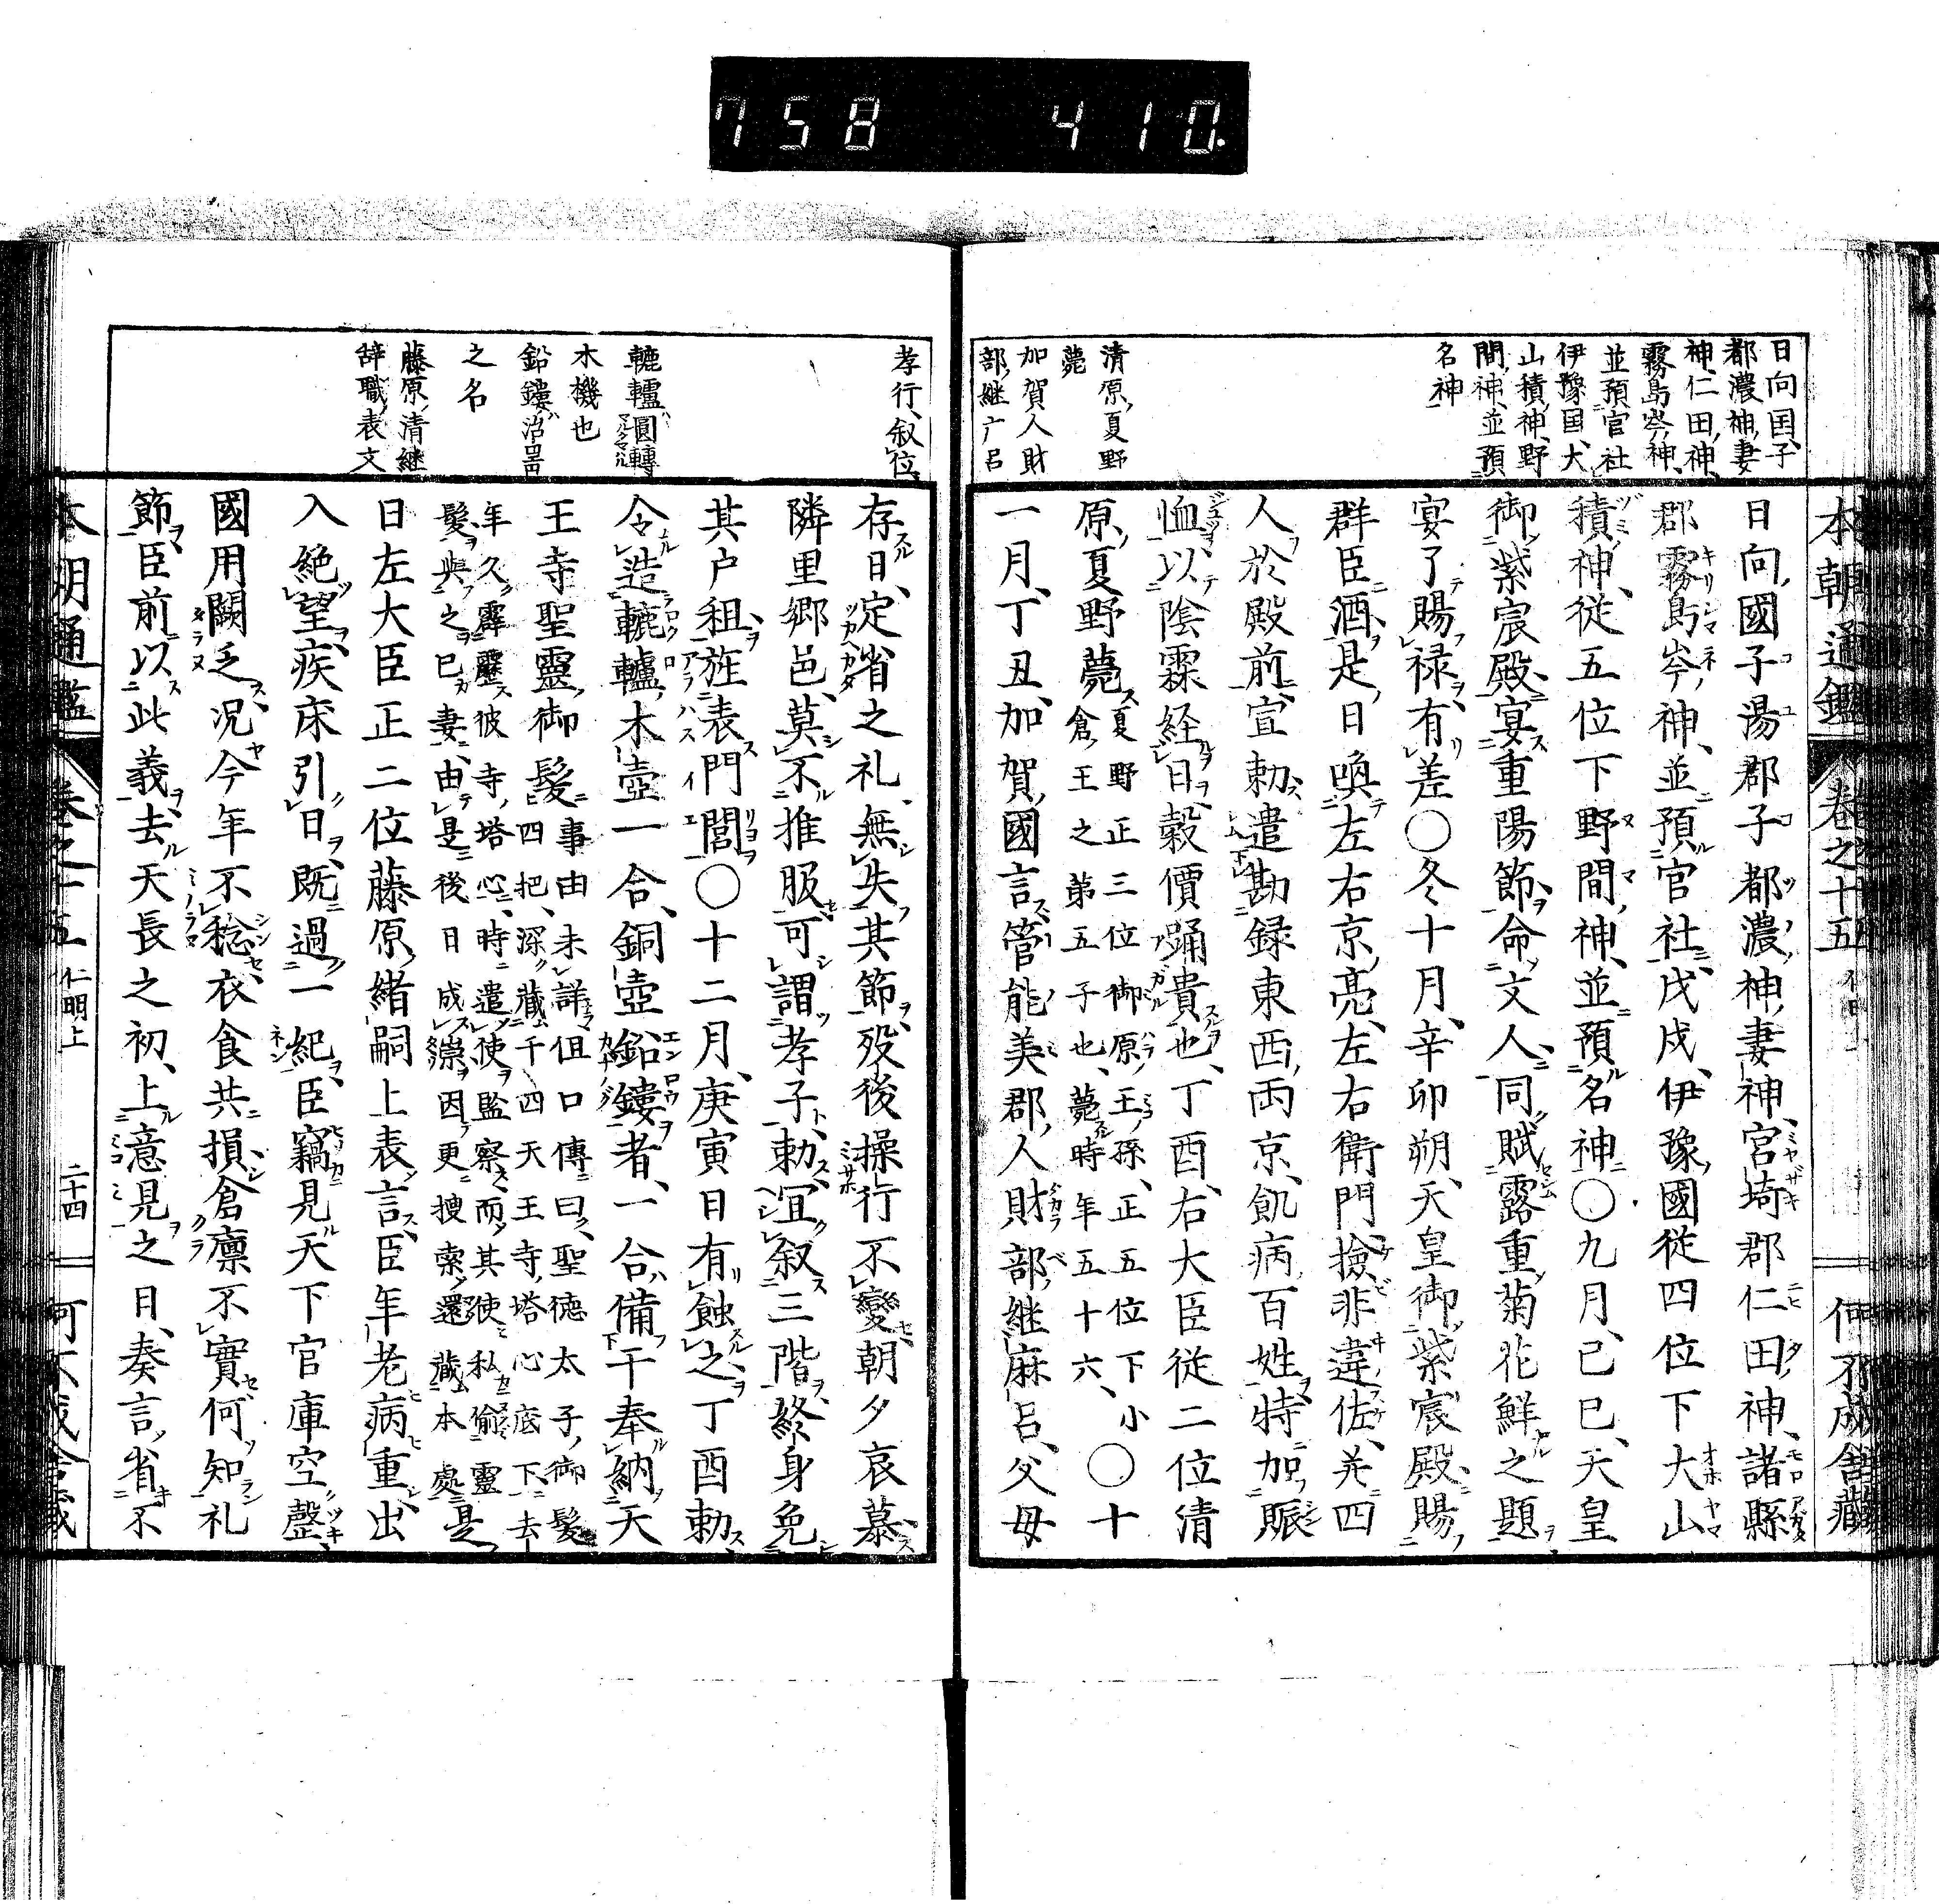 758 410.
日向国、子
都濃神、妻
神、仁田神、
霧島岑神、
並預官社
伊豫国、大
山積神、野
間神、並預
名神
清原夏野
薨
加賀人財
部継广呂
本朝通鑑 卷之十五
日向國子湯郡子都濃神、妻神、宮埼郡仁田神、諸縣
郡霧島岑神、並預官社、戊戌、伊豫國從四位下大山
積神、從五位下野間神、並預名神〇九月、己巳、天皇
御紫宸殿、宴重陽節、命文人、同賦露重菊花鮮之題
宴了賜禄、有差〇冬十月、辛卯朔、天皇御紫宸殿、賜
群臣酒、是日喚左右京亮、左右衛門撿非違佐、并四
人於殿前、宣勅遣勘録東西両京、飢病百姓、特加賑
恤、以陰霖経日穀價踊貴也、丁酉、右大臣從二位清
原夏野薨夏野正三位御原王孫、正五位下小倉王之第五子也、薨時年五十六、〇十
一月、丁丑、加賀國言、管能美郡人財部継麻呂、父母
孝行、叙位、
轆轤圓轉
木機也
鉛鏤沼器
之名
藤原清継
辞職表文
存日、定省之礼、無失其節、歿後操行不變朝夕哀慕、
隣里郷邑、莫不推服可謂孝子、勅、冝叙三階、終身免
其户租、旌表門閭〇十二月、庚寅日有蝕之、丁酉勅
令造轆轤木壺一合、銅壺鉛鏤者、一合、備干奉納天
王寺聖靈御髪事由未詳但口傳曰、聖徳太子御髪四把、深藏于四天王寺塔心底下、去
年久霹靂彼寺塔心、時遣使監察、而其使私偷靈髪與之已妻、由是後日成祟因更捜索還藏本處、是
日左大臣正二位藤原緒嗣上表言、臣年老病重、出
入絶望、疾床引日、既過一紀、臣竊見天下官庫空罄、
國用闕乏、况今年不稔、衣食共損、倉廩不實何知礼
節、臣前以此義、去天長之初、上意見之日、奏言、省不
卷之十五 仁明上 二十四